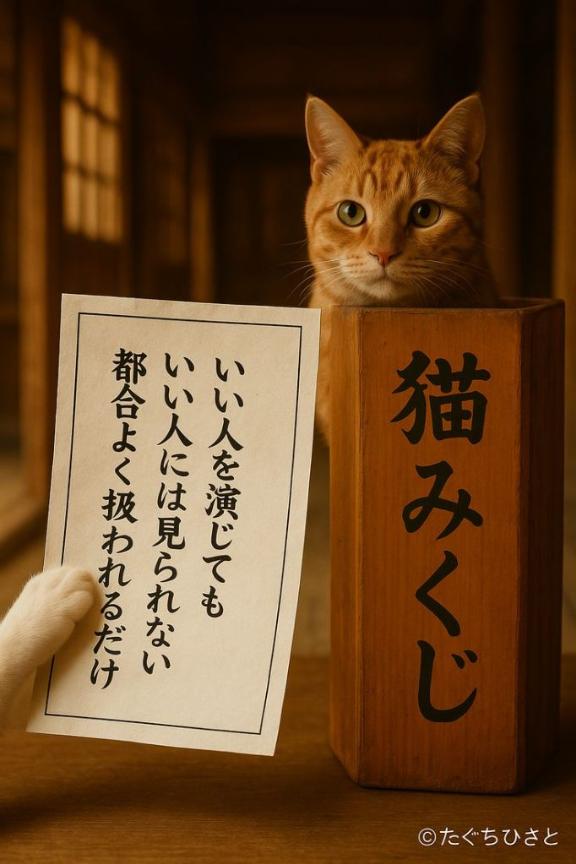 いい人を演じても
いい人には見られない
都合よく扱われるだけ
猫みくじ
©たぐちひさと